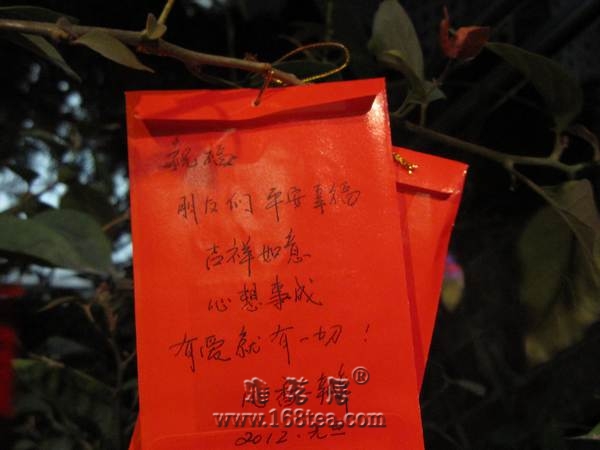 祝福
朋友们 平安幸福
吉祥如意
心想事成
有爱就有一切！
www.168tea.com
2012.元旦